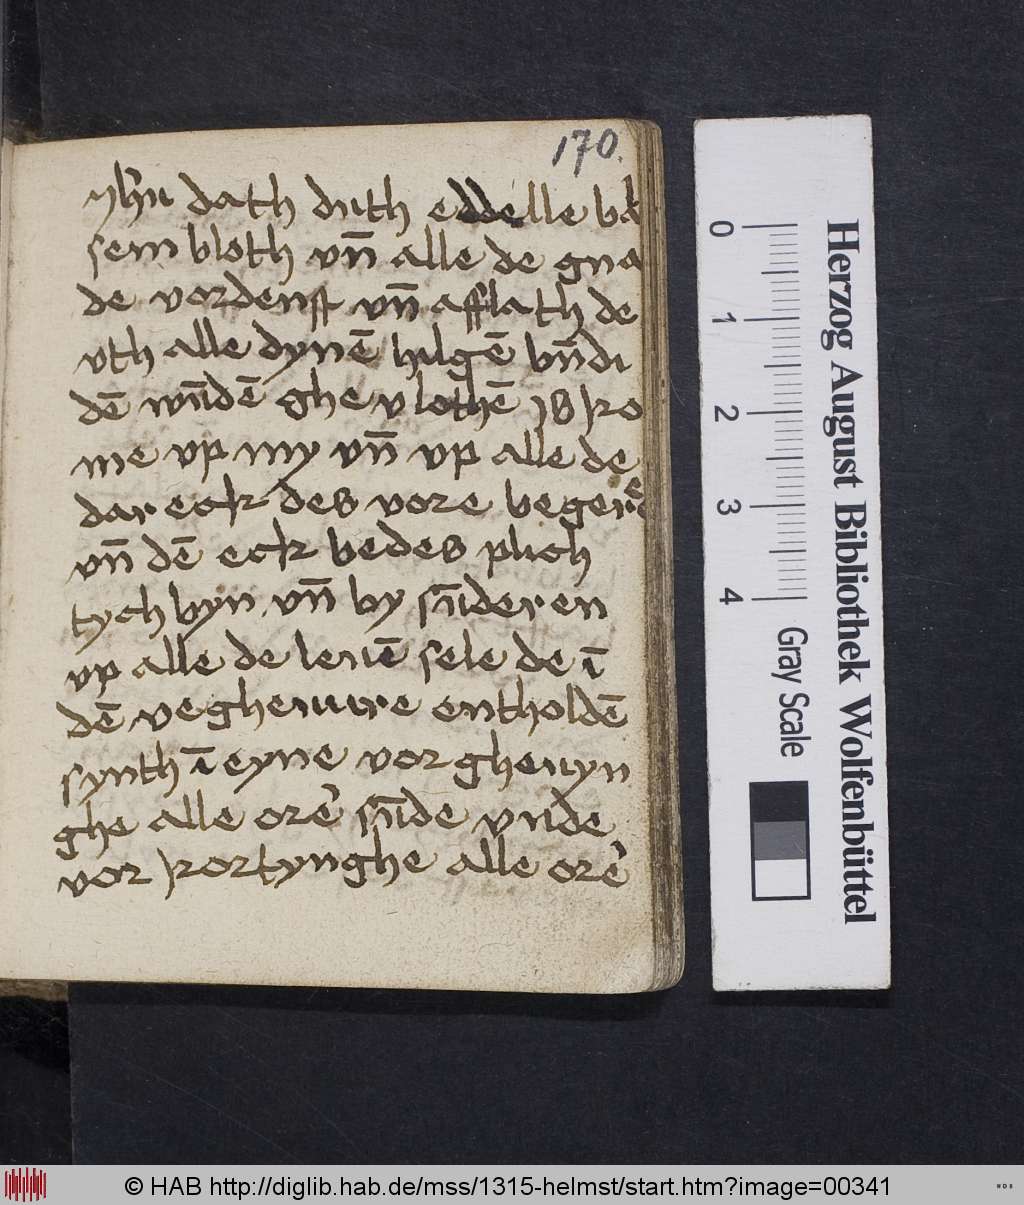 170.
yhu dath duth eddelle bal
sem bloth vn̄ alle de gna
de vordenst vn̄ afflath de
vth alle dynē hilgē bn̄di
dē wn̄dē ghe vlothē is ko
me vp my vn̄ vp alle de
dar eck des vore begerē
vn̄ dē eck bedes plich
tych byn vn̄ by sn̄deren
vp alle de leuē sele de ī
dē veghevure entholdē
synth ī eyne vorgheuyn
ghe alle orer sn̄de vnde
vor kortynghe alle orer
0
1
2
3
4
Gray Scale
Herzog August Bibliothek Wolfenbüttel
© HAB http://diglib.hab.de/mss/1315-helmst/start.htm?image=00341